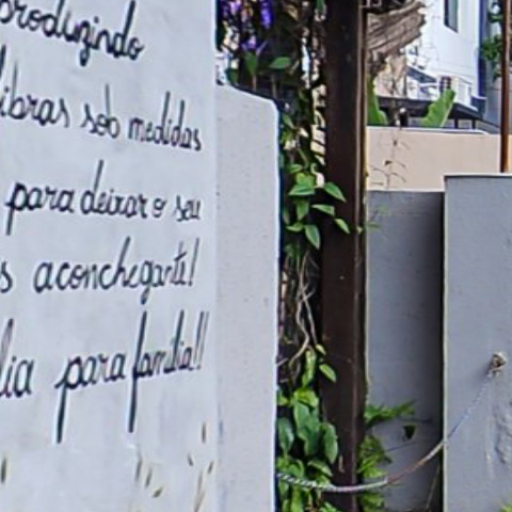 produzindo
libras sob medidas
para deixar o seu
s aconchegante!
lia para família!!